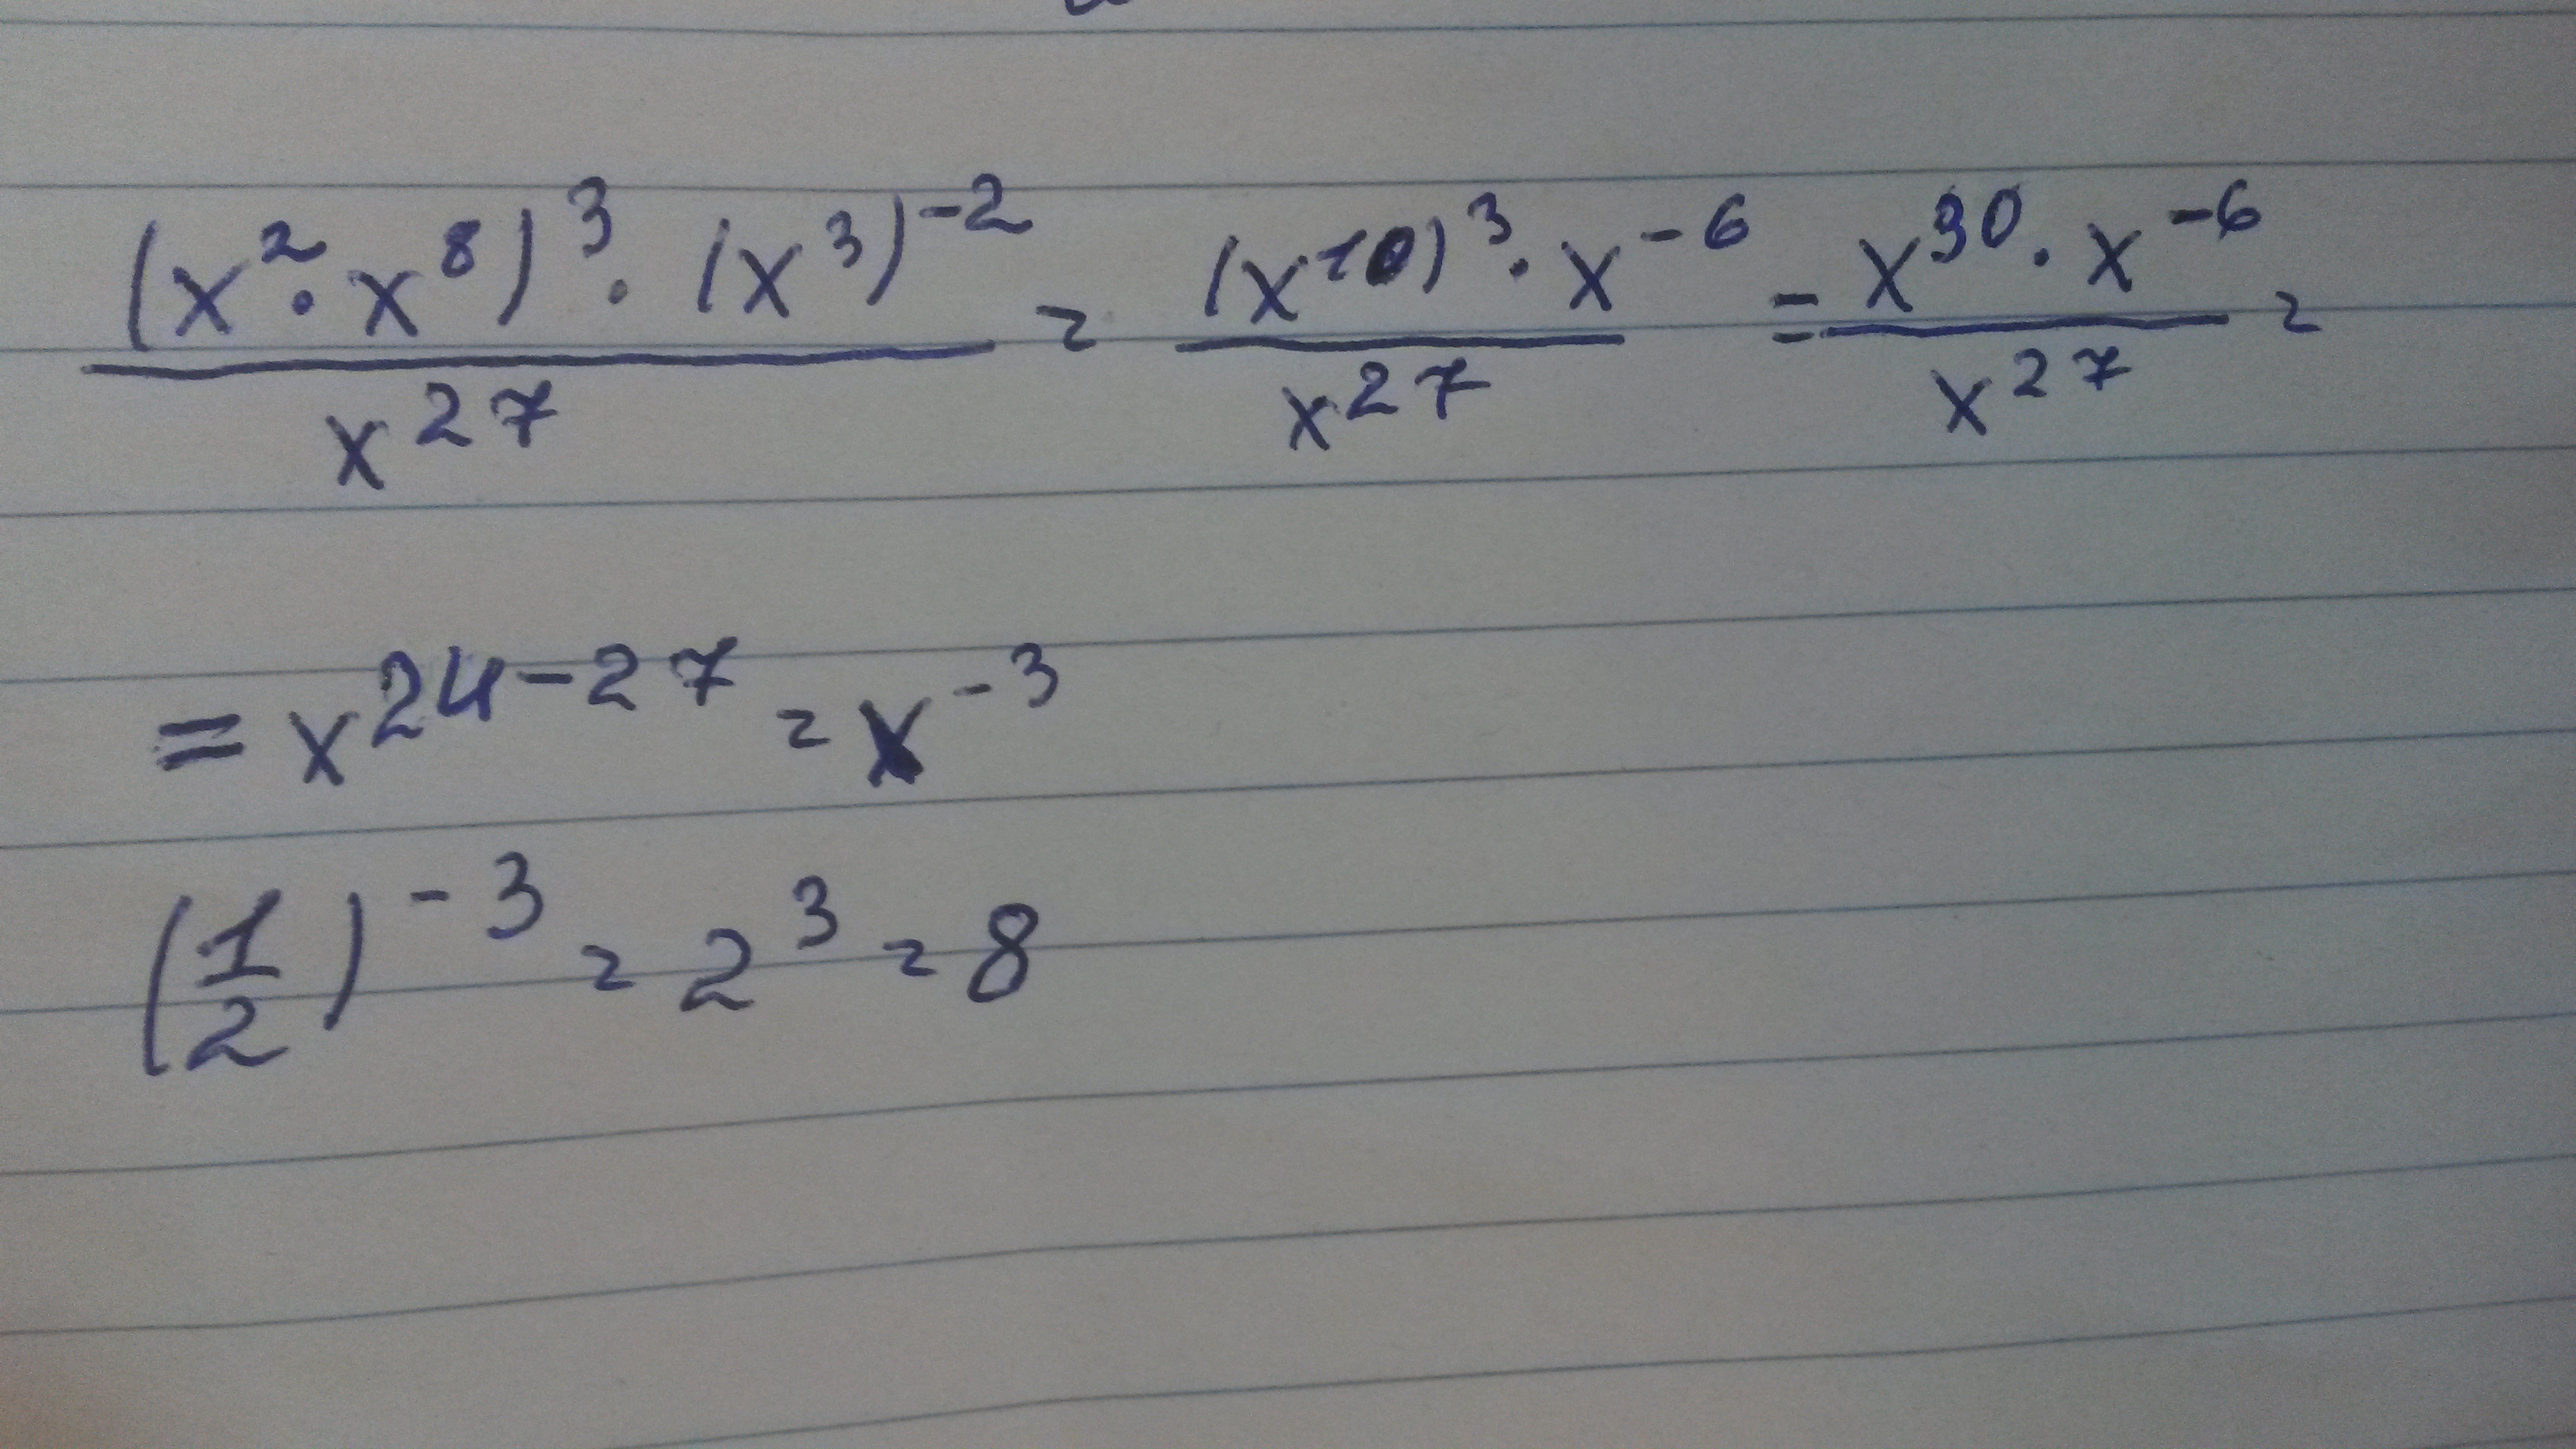 (x²·x⁸)³·(x³)⁻²/x²⁷ = (x¹⁰)³·x⁻⁶/x²⁷ = x³⁰·x⁻⁶/x²⁷ =
= x²⁴⁻²⁷ = x⁻³
(1/2)⁻³ = 2³ = 8